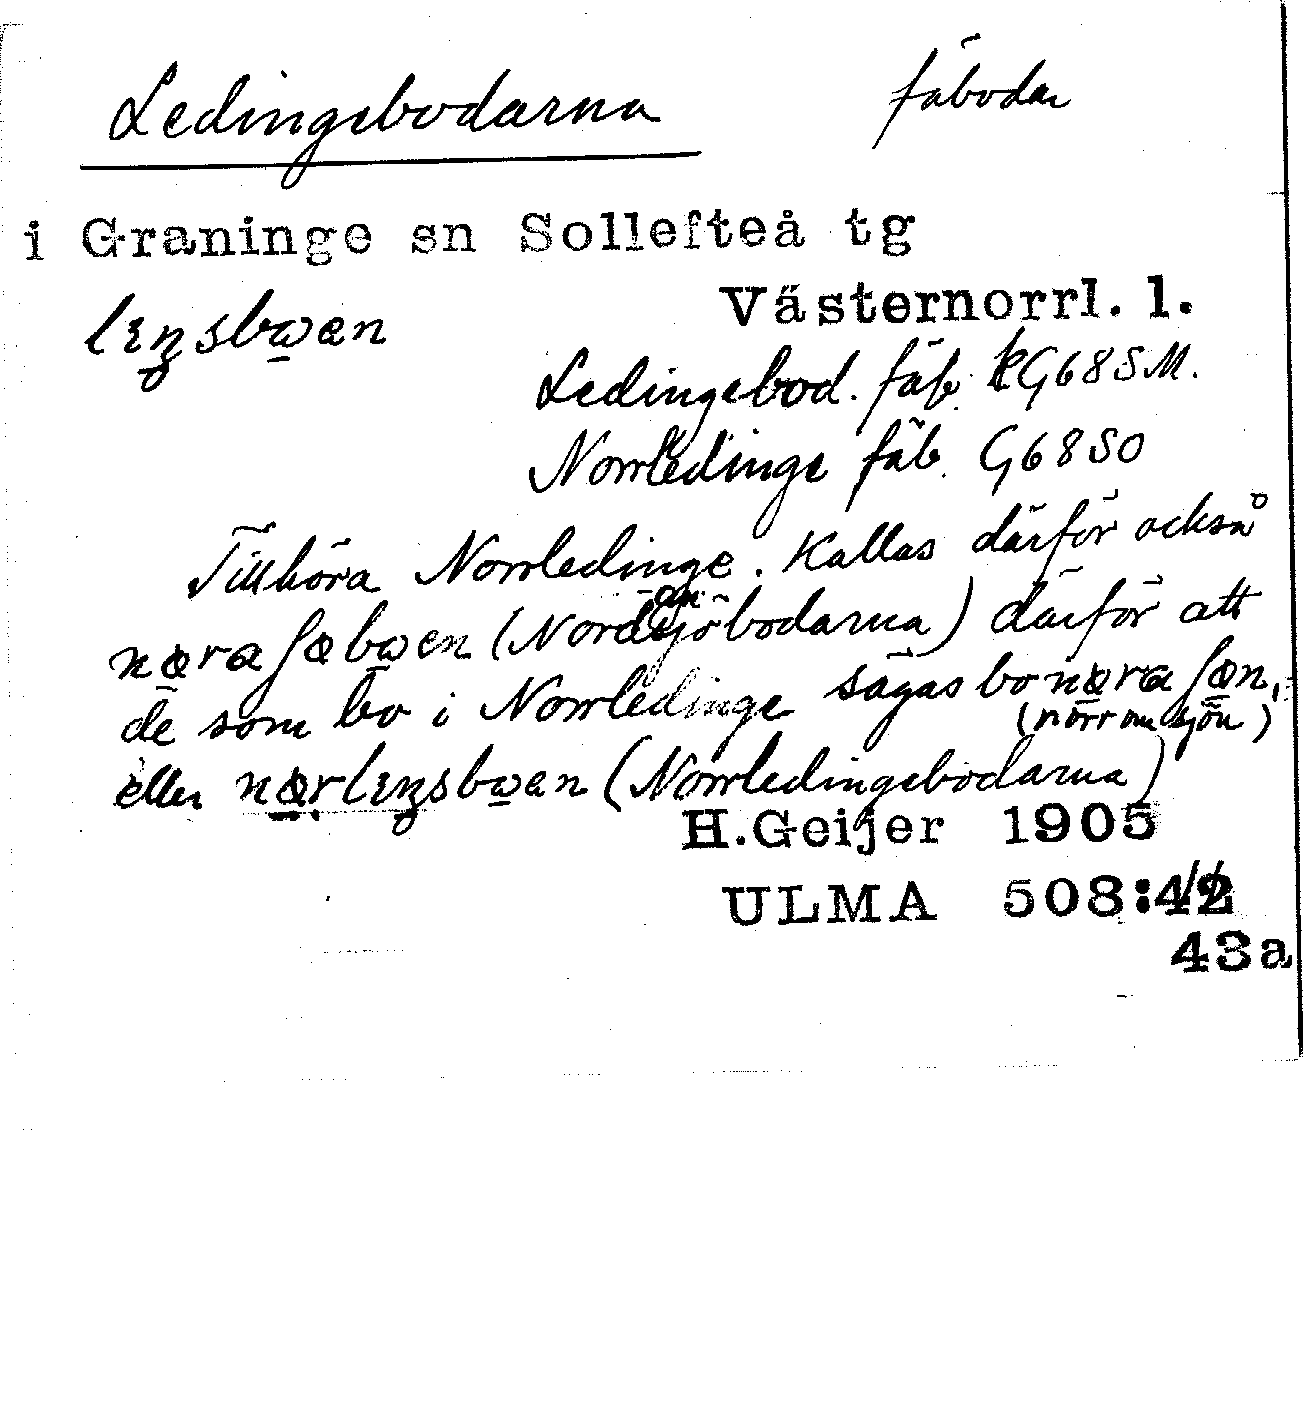 Ledingebodarna fäbodar
i Graninge sn Sollefteå tg
Västernorrl. l.
Ledingebod. fäb. G68SM.
Norrledinge fäb. G68SO
Tillhöra Norrledinge. Kallas därför också
(Nordansjöbodarna) därför att
de som bo i Norrledinge sägas bo
(norr om sjön)
eller (Norrledingebodarna)
H.Geijer 1905
ULMA 508:
43a